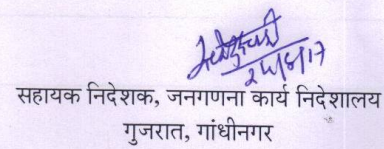 सहायक निदेशक, जनगणना कार्य निदेशालय
गुजरात, गांधीनगर